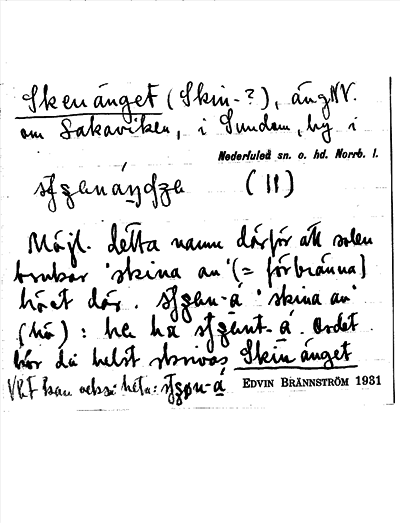 Skenänget (Skin-?), äng NV.
om Sakaviken, i Sundom, by i
Nederluleå sn. o. hd. Norrb. l.
(11)
Möjl. detta namn därför att solen
brukar 'skina an' (= förbränna)
höet där. 'skina an'
(hö): he ha Ordet
bör då helst skrivas Skinänget
VRF kan också heta:
EDVIN BRÄNNSTRÖM 1931